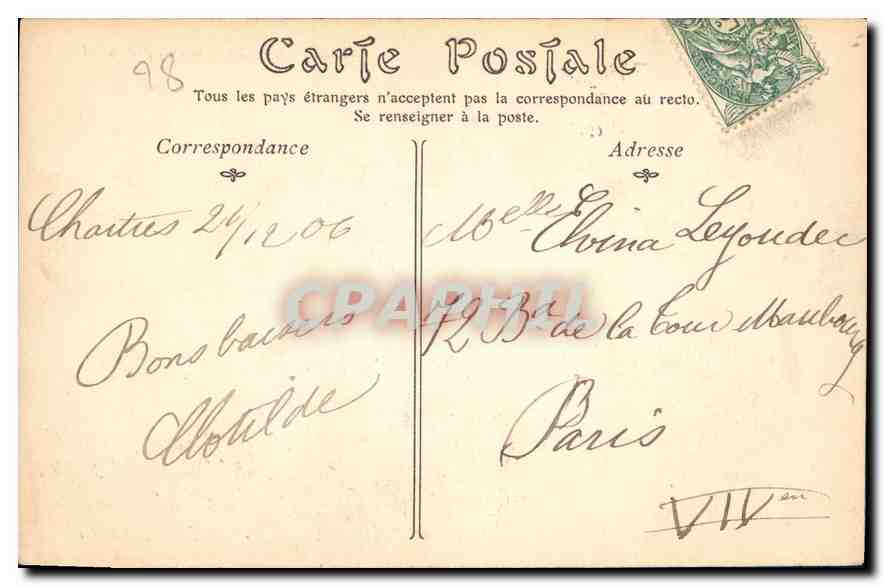 98
Carte Postale
Tous les pays étrangers n'acceptent pas la correspondance au recto.
Se renseigner à la poste.
Correspondance
Chartres 24/12 06
Bons baisers
Clotilde
Adresse
Melle Elvina Leyoudec
72 Bd de la Tour Maubourg
Paris
VII en
CPAPHIL